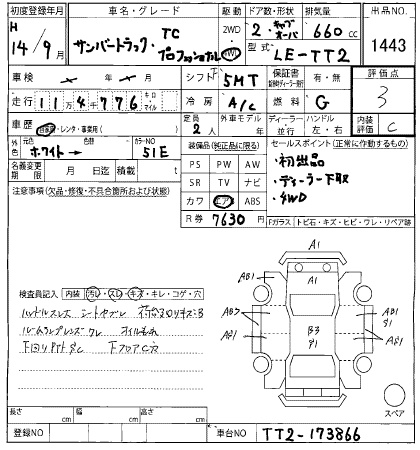 初度登録年月 車名・グレード 駆動 ドア数・形状 排気量 出品No.
H 14/9月 サンバートラック TC プロフェッショナル 2WD 4WD 2・キャブオーバ 660cc 1443
型式 LE-TT2
車検 シフト 5MT 保証書 有・無 評価点 3
走行 11万4千776 キロ マイル 冷房 A/C 燃料 G
車歴 自家用・レンタ・事業用( ) 定員 2人 外車モデル 年 ディーラー 並行 ハンドル 左・右 内装評価 C
外色 元色 ホワイト→ 色替 カラーNO 51E 装備品(純正品に限る) セールスポイント(正常に作動するもの)
名義変更期限 月 日迄 積載 t PS PW AW ・初出品
注意事項(欠品・修復・不具合箇所および状態) SR TV ナビ ・ディーラー下取
カワ エアB ABS ・4WD
R券 7630円 Fガラス トビ石・キズ・ヒビ・ワレ・リペア跡
A1
AB1 A1 AB1
検査員記入 内装 汚レ・スレ・キズ・キレ・コゲ・穴
ハンドルスレ シートヤブレ 荷台エクボキズB
ルームランプレンズワレ オイルもれ
下回りPTサC 下フロアC穴
B3
スペア
長さ cm 幅 cm 高さ cm
登録NO 車台NO TT2-173866